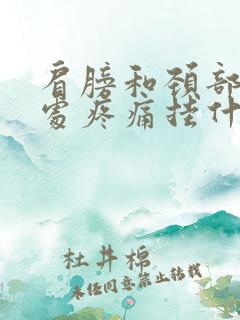 肩膀和颈部
处疼痛挂什
杜井棉
未经同意禁止转载